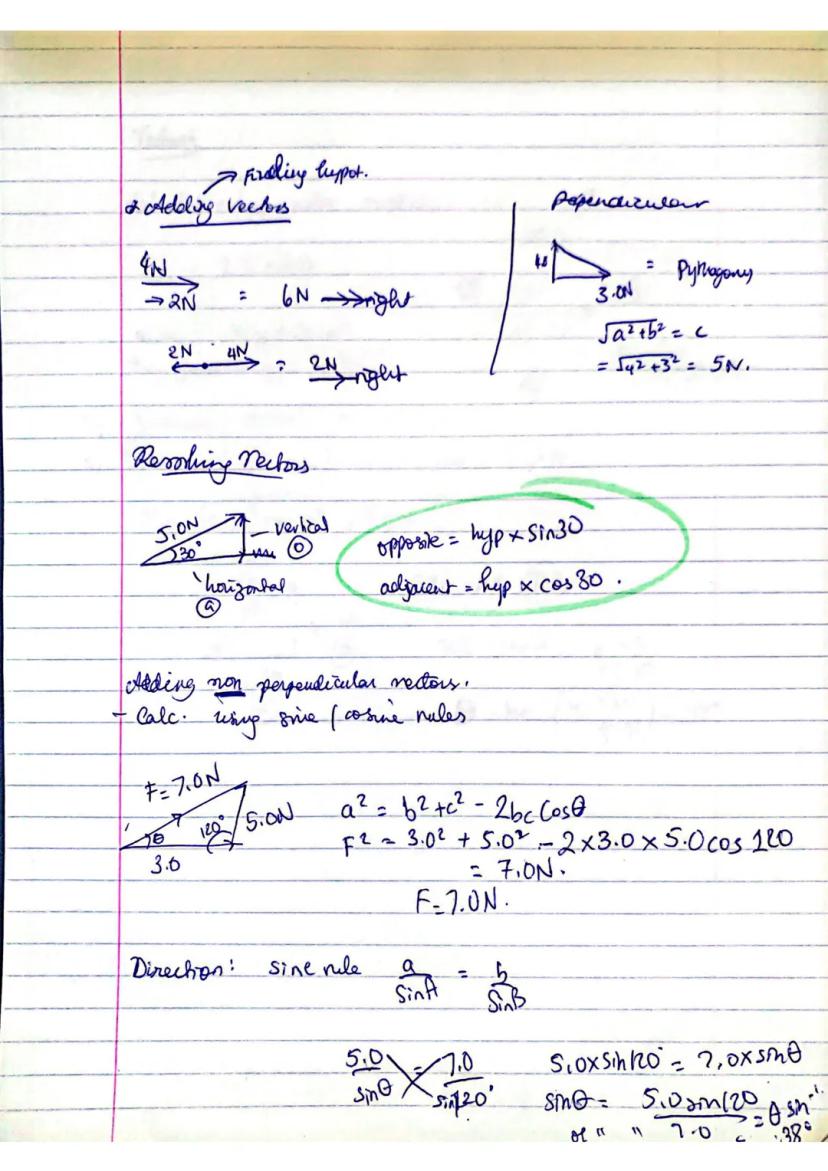 → Finding hypot.
Adding vectors
4N
→ 2N = 6N → right
2N 4N = 2N → right
Perpendicular
3.0N = Pythagoras
√a²+b² = c
= √4²+3² = 5N.
Resolving Vectors
5.0N
30°
vertical
(o)
horizontal
(a)
opposite = hyp × sin30
adjacent = hyp × cos 30.
Adding non perpendicular vectors.
- Calc. using sine / cosine rules
F = 7.0N
θ 120° 5.0N
3.0
a² = b² + c² - 2bc Cosθ
F² = 3.0² + 5.0² - 2×3.0×5.0 cos 120
= 7.0N.
F = 7.0N.
Direction: sine rule a/SinA = b/SinB
5.0/sinθ = 7.0/sin120°
5.0×Sin120° = 7.0×sinθ
sinθ = 5.0 sin120/7.0 = θ sin⁻¹
" " 38°